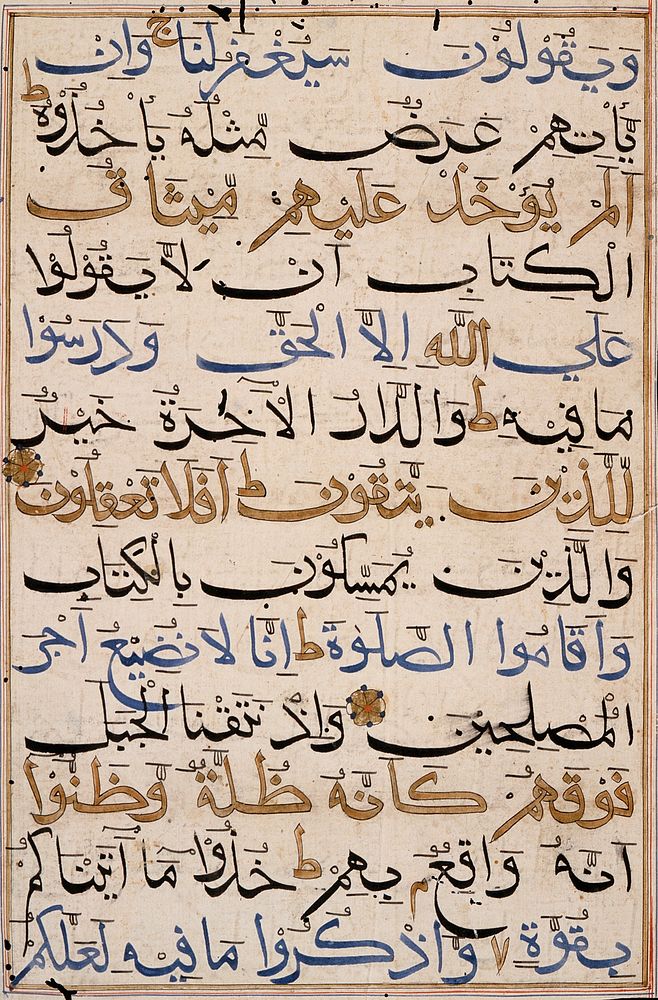 وَيَقُولُونَ سَيُغْفَرُ لَنَا ج وَاِنْ
يَأْتِهِمْ عَرَضٌ مِّثْلُهُ يَأْخُذُوهُ ط
اَلَمْ يُؤْخَذْ عَلَيْهِمْ مِّيثَاقُ
الْكِتَابِ اَنْ لَّا يَقُولُوا
عَلَى اللَّهِ اِلَّا الْحَقَّ وَدَرَسُوا
مَا فِيهِ ط وَالدَّارُ الْاٰخِرَةُ خَيْرٌ
لِّلَّذِينَ يَتَّقُونَ ط اَفَلَا تَعْقِلُونَ
وَالَّذِينَ يُمَسِّكُونَ بِالْكِتَابِ
وَاَقَامُوا الصَّلٰوةَ ط اِنَّا لَا نُضِيعُ اَجْرَ
الْمُصْلِحِينَ وَاِذْ نَتَقْنَا الْجَبَلَ
فَوْقَهُمْ كَاَنَّهُ ظُلَّةٌ وَّظَنُّوا
اَنَّهُ وَاقِعٌ بِهِمْ ط خُذُوا مَا اٰتَيْنَاكُمْ
بِقُوَّةٍ وَّاذْكُرُوا مَا فِيهِ لَعَلَّكُمْ